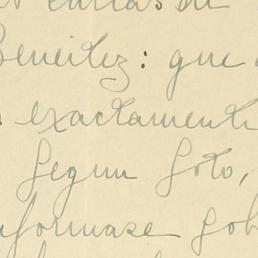 cartas de
Beneitez: que
exactamente
segun Soto,
informase sob